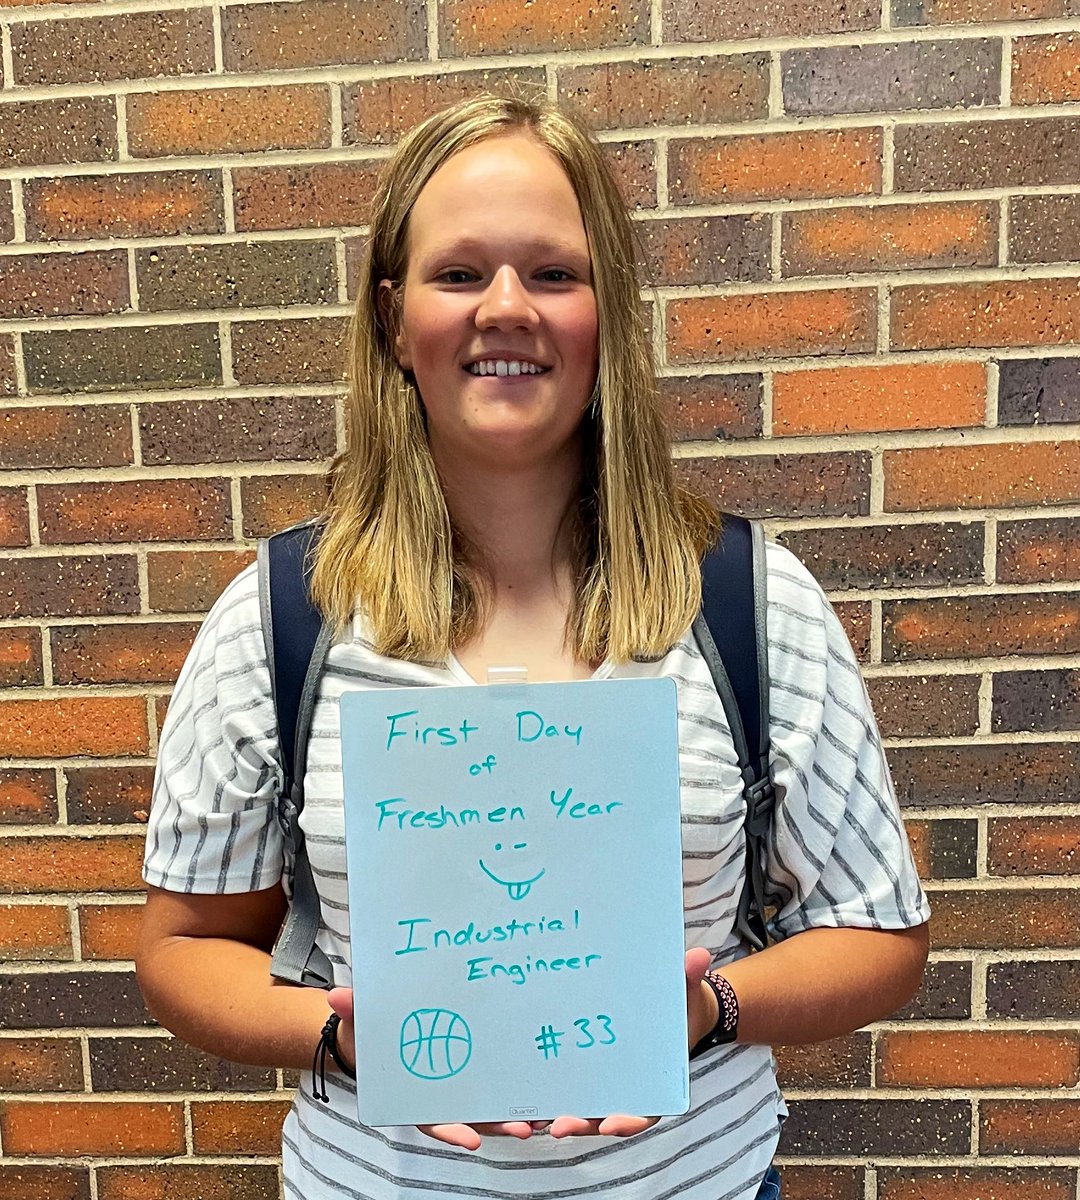 First Day
of
Freshmen Year
Industrial
Engineer
#33
Quartet